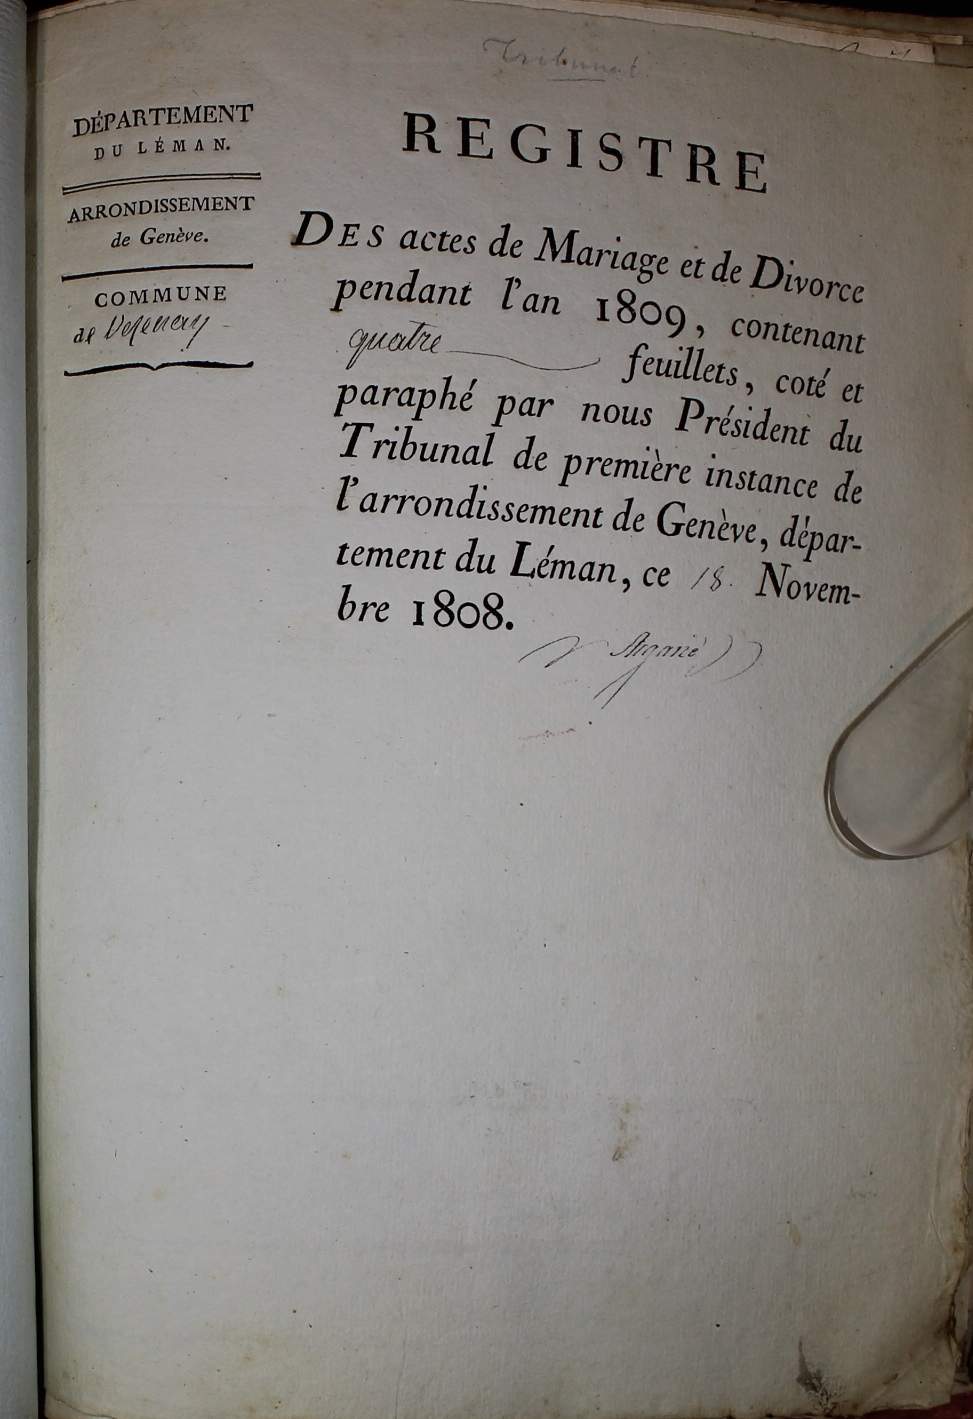 Tribunat
DÉPARTEMENT
DU LÉMAN.
ARRONDISSEMENT
de Genève.
COMMUNE
de
REGISTRE
DES actes de Mariage et de Divorce
pendant l'an 1809, contenant
quatre feuillets, coté et
paraphé par nous Président du
Tribunal de première instance de
l'arrondissement de Genève, dépar-
tement du Léman, ce 18. Novem-
bre 1808.